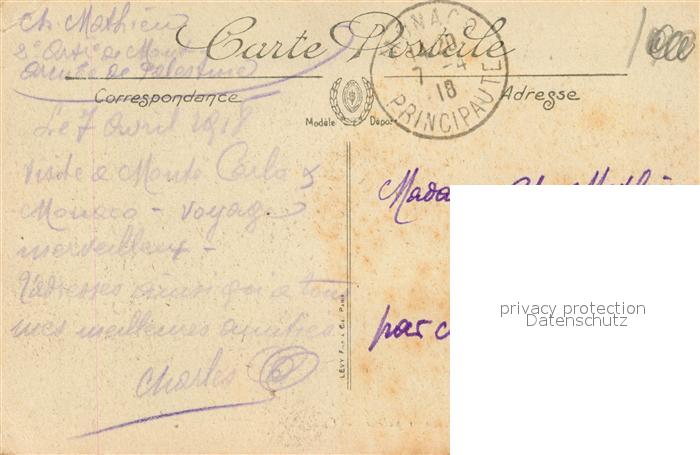 Ch. Mathieu
Armée de Palestine
Carte Postale
MONACO
7 -4
18
PRINCIPAUTÉ
Correspondance
Adresse
Modèle Déposé
Le 7 avril 1918
Visite a Monte Carlo &
Monaco - voyage
merveilleux -
ainsi qu'a tous
mes meilleures amitiés
Charles
LEVY Fils & Cie Paris
Ch. Mathieu
par
privacy protection
Datenschutz